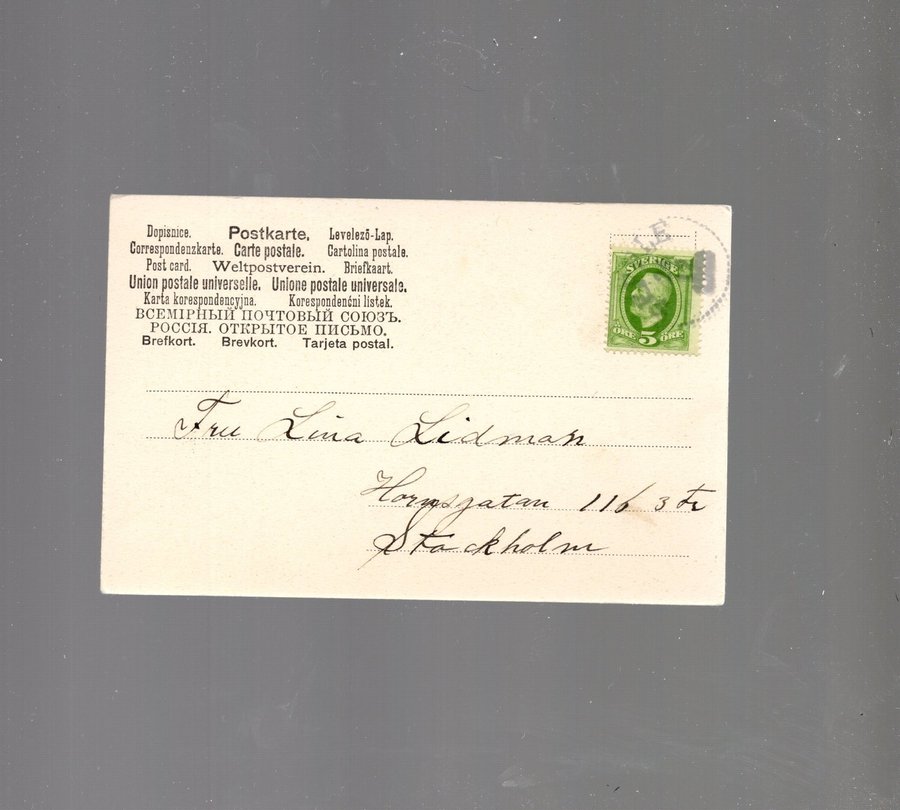 Dopisnice. Postkarte, Levelező-Lap.
Correspondenzkarte. Carte postale. Cartolina postale.
Post card. Weltpostverein. Briefkaart.
Union postale universelle. Unione postale universale.
Karta korespondencyjna. Korespondenční lístek.
ВСЕМІРНЫЙ ПОЧТОВЫЙ СОЮЗЪ.
РОССІЯ. ОТКРЫТОЕ ПИСЬМО.
Brefkort. Brevkort. Tarjeta postal.
LE
SVERIGE
ÖRE 5 ÖRE
Fru Lina Lidman
Hornsgatan 116 3 tr
Stockholm